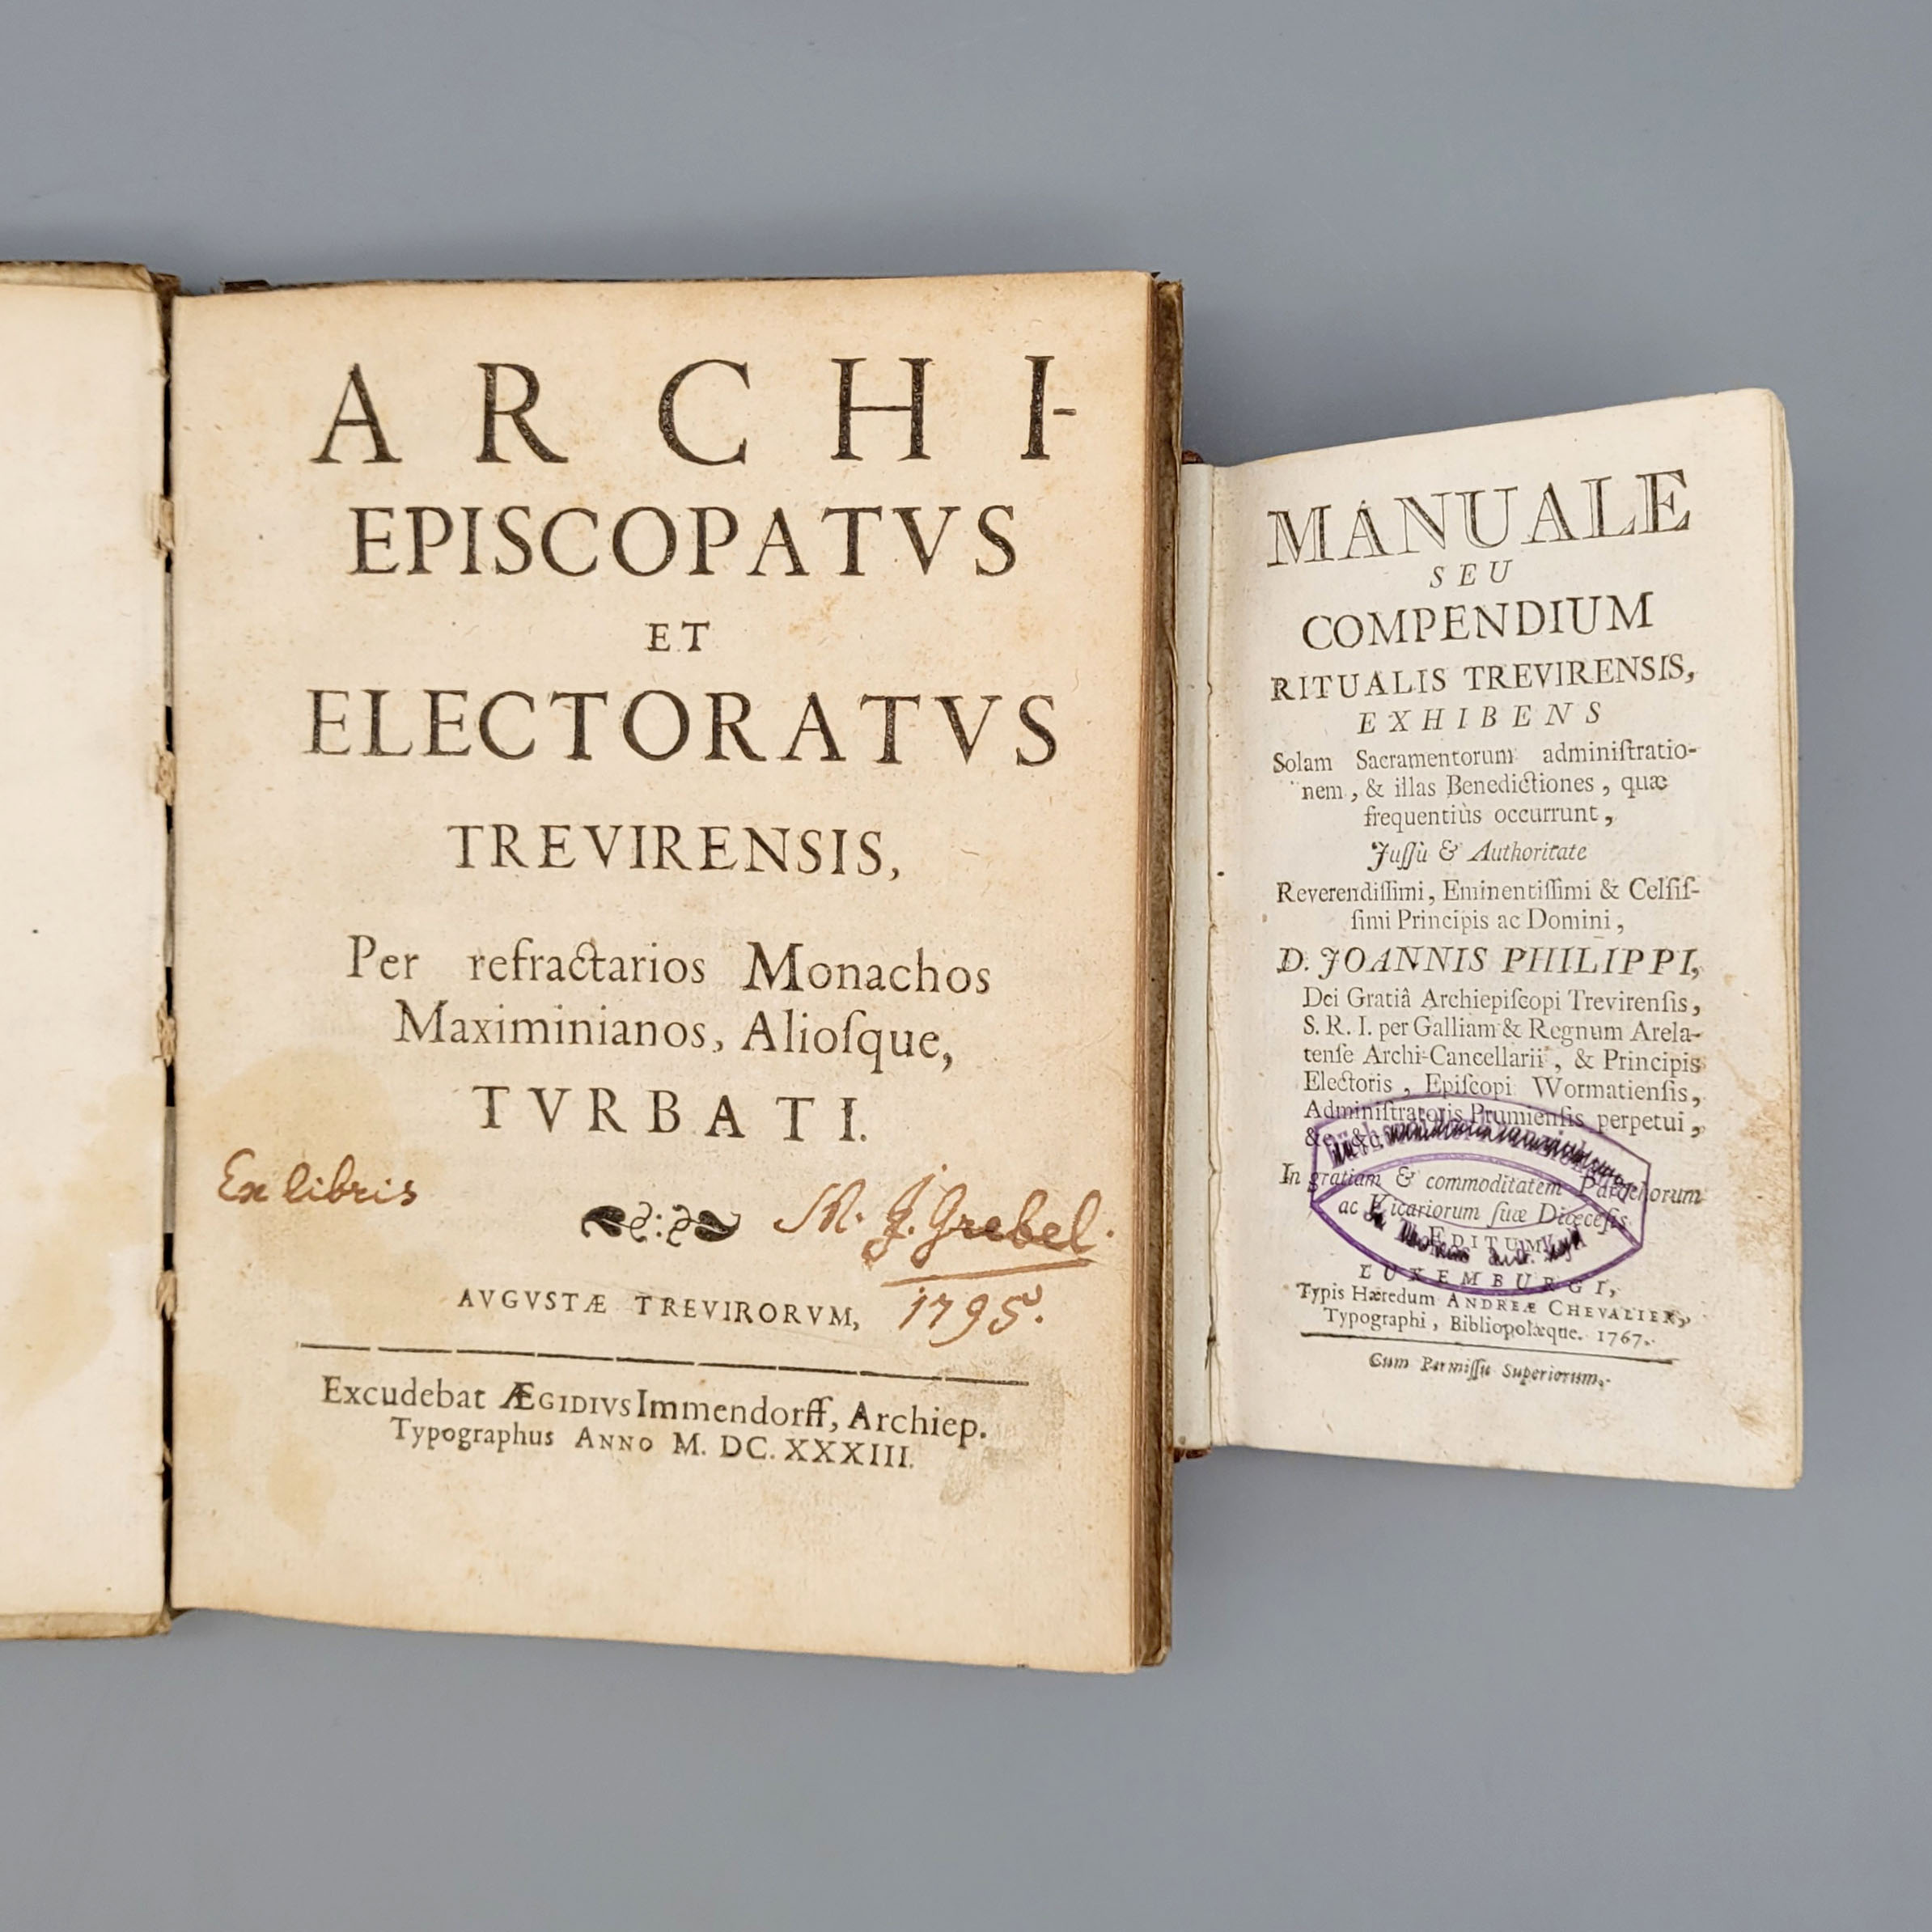 ARCHI-
EPISCOPATVS
ET
ELECTORATVS
TREVIRENSIS,
Per refractarios Monachos
Maximinianos, Alioſque,
TVRBATI.
Ex libris
M. J. Grebel.
1795.
AVGVSTÆ TREVIRORVM,
Excudebat ÆGIDIVS Immendorff, Archiep.
Typographus ANNO M. DC. XXXIII.
MANUALE
SEU
COMPENDIUM
RITUALIS TREVIRENSIS,
EXHIBENS
Solam Sacramentorum adminiſtratio-
nem, & illas Benedictiones, quæ
frequentiùs occurrunt,
Juſſù & Authoritate
Reverendiſſimi, Eminentiſſimi & Celſiſ-
ſimi Principis ac Domini,
D. JOANNIS PHILIPPI,
Dei Gratiâ Archiepiſcopi Trevirenſis,
S. R. I. per Galliam & Regnum Arela-
tenſe Archi-Cancellarii, & Principis
Electoris, Epiſcopi Wormatienſis,
Adminiſtratoris Prumienſis perpetui,
&c. &c.
In gratiam & commoditatem Parochorum
ac Vicariorum ſuæ Diœceſis
EDITUM.
LUXEMBURGI,
Typis Hæredum ANDREÆ CHEVALIER,
Typographi, Bibliopolæque. 1767.
Cum Permiſſu Superiorum.